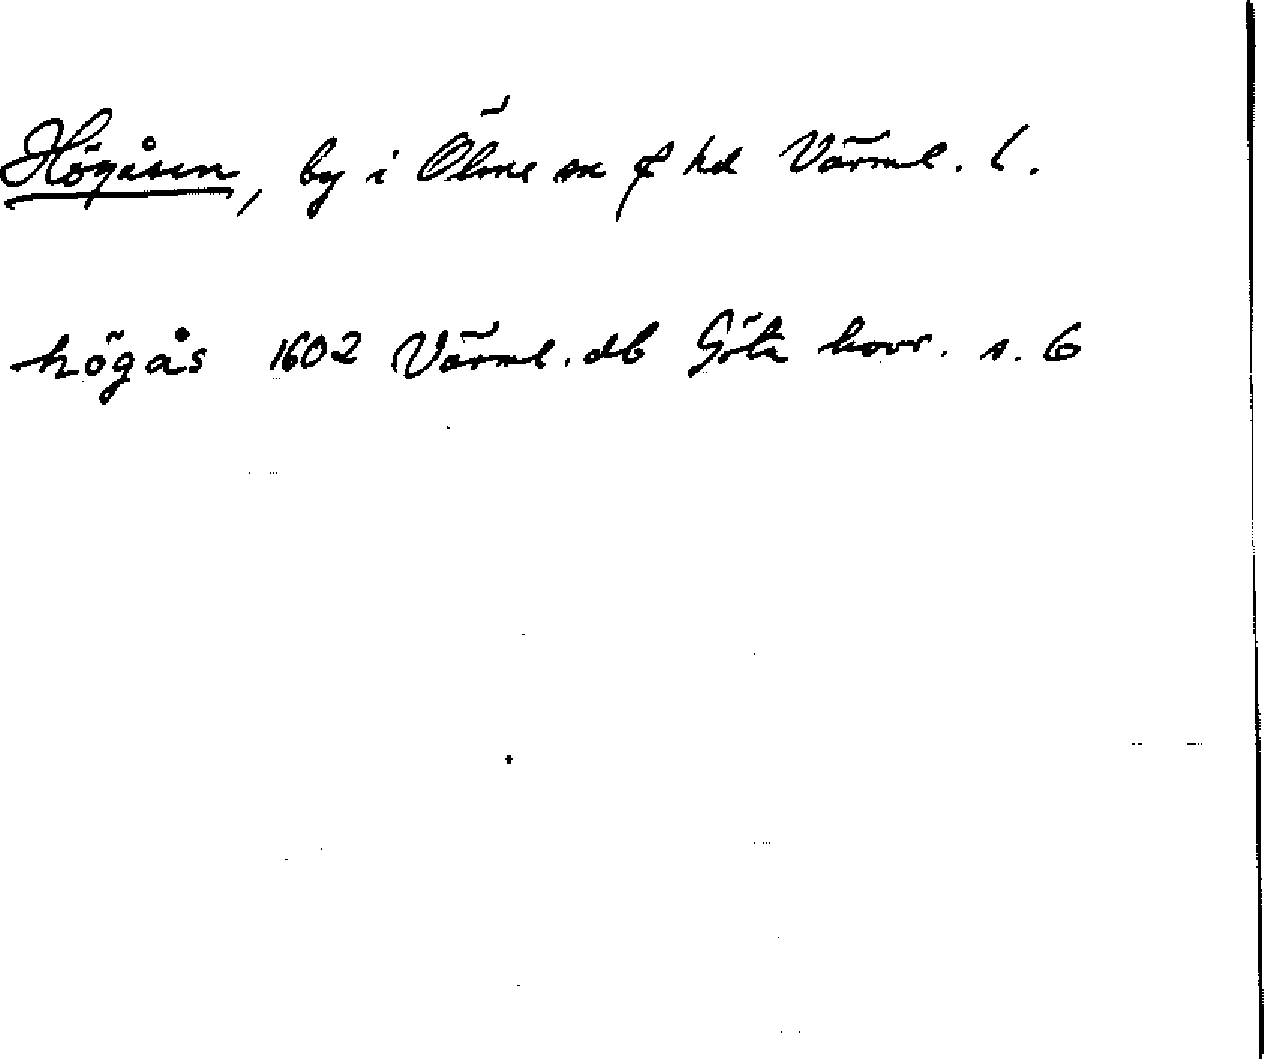 Högåsen, by i Ölme sn & hd Värml. l.
högås 1602 Värml. db Göta hovr. s. 6